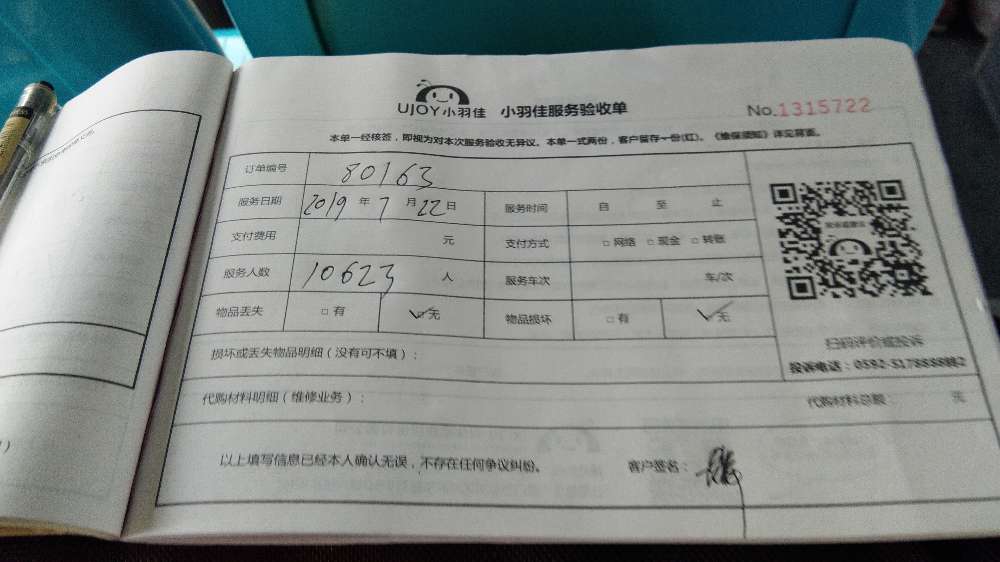 UJOY小羽佳 小羽佳服务验收单 No.1315722
本单一经核签，即视为对本次服务验收无异议。本单一式两份，客户留存一份(红)。《验保须知》详见背面。
订单编号 80163
服务日期 2019 年 7 月 22 日 服务时间 自 至 止
支付费用 元 支付方式 □ 网络 □ 现金 □ 转账
服务人数 10623 人 服务车次 车/次
物品丢失 □ 有 ☑ 无 物品损坏 □ 有 ☑ 无
扫码评价或投诉
损坏或丢失物品明细（没有可不填）：
投诉电话：0592-5178888转2
代购材料明细（维修业务）： 代购材料总额： 元
以上填写信息已经本人确认无误，不存在任何争议纠纷。 客户签名：